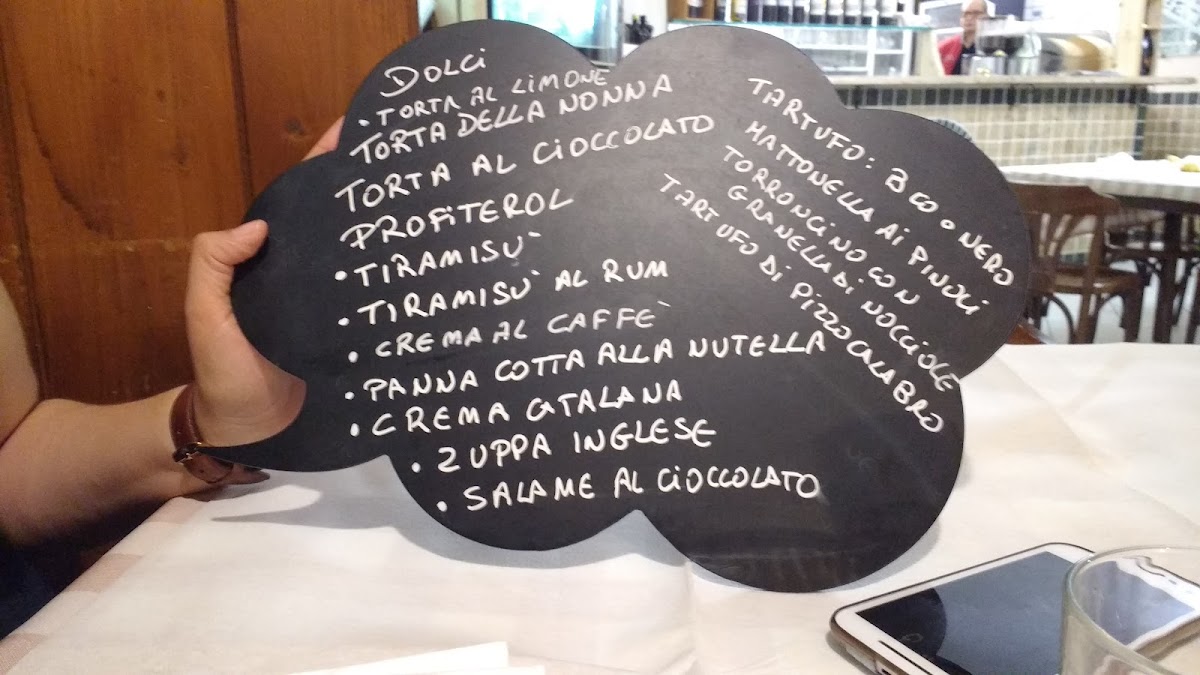 DOLCI
• TORTA AL LIMONE
TORTA DELLA NONNA
TORTA AL CIOCCOLATO
PROFITEROL
• TIRAMISU'
• TIRAMISU' AL RUM
• CREMA AL CAFFE'
• PANNA COTTA ALLA NUTELLA
• CREMA CATALANA
• ZUPPA INGLESE
• SALAME AL CIOCCOLATO
TARTUFO: BCO O NERO
MATTONELLA AI PINOLI
TORRONCINO CON
GRANELLA DI NOCCIOLE
TARTUFO DI PIZZO CALABRO